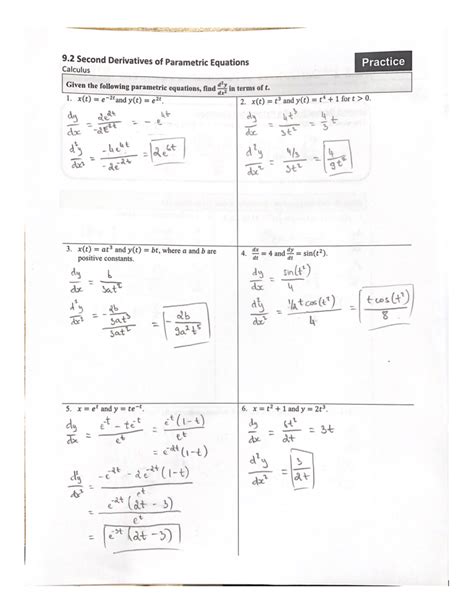 9.2 Second Derivatives of Parametric Equations
Calculus
Practice
Given the following parametric equations, find d²y/dx² in terms of t.
1. x(t) = e^(-2t) and y(t) = e^(2t).
dy/dx = 2e^(2t)/-2e^(-2t) = -e^(4t)
d²y/dx² = -4e^(4t)/-2e^(-2t) = 2e^(6t)
2. x(t) = t³ and y(t) = t⁴ + 1 for t > 0.
dy/dx = 4t³/3t² = 4/3 t
d²y/dx² = 4/3/3t² = 4/9t²
3. x(t) = at³ and y(t) = bt, where a and b are
positive constants.
dy/dx = b/3at²
d²y/dx² = -2b/3at³/3at² = -2b/9a²t⁵
4. dx/dt = 4 and dy/dt = sin(t²).
dy/dx = sin(t²)/4
d²y/dx² = 1/2 t cos(t²)/4 = t cos(t²)/8
5. x = e^t and y = te^(-t).
dy/dx = e^(-t) - te^(-t)/e^t = e^(-t)(1-t)/e^t
= e^(-2t)(1-t)
d²y/dx² = -e^(-2t) - 2e^(-2t)(1-t)/e^t
= e^(-2t)(2t-3)/e^t
= e^(-3t)(2t-3)
6. x = t² + 1 and y = 2t³.
dy/dx = 6t²/2t = 3t
d²y/dx² = 3/2t